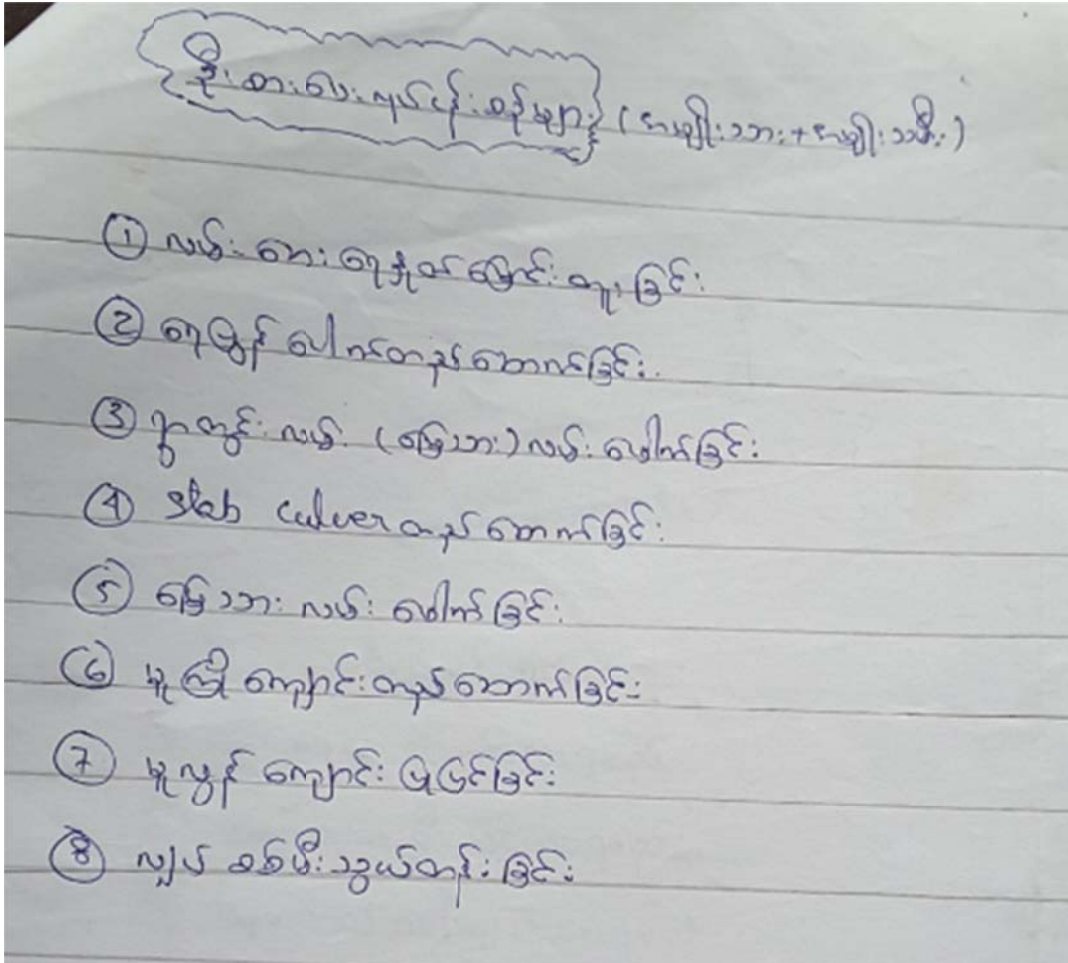 ဦးစားပေးလုပ်ငန်းစဉ်များ (အမျိုးသား+အမျိုးသမီး)
① လမ်းဘေးရေနှုတ်မြောင်းတူးခြင်း
② ရေပြွန်ပေါက်တည်ဆောက်ခြင်း.
③ ရွာတွင်းလမ်း (မြေသား) လမ်းဖေါက်ခြင်း
④ Slab culver တည်ဆောက်ခြင်း
⑤ မြေသားလမ်းဖေါက်ခြင်း
⑥ မူကြိုကျောင်းတည်ဆောက်ခြင်း
⑦ မူလွန်ကျောင်းပြုပြင်ခြင်း
⑧ လျှပ်စစ်မီးသွယ်တန်းခြင်း